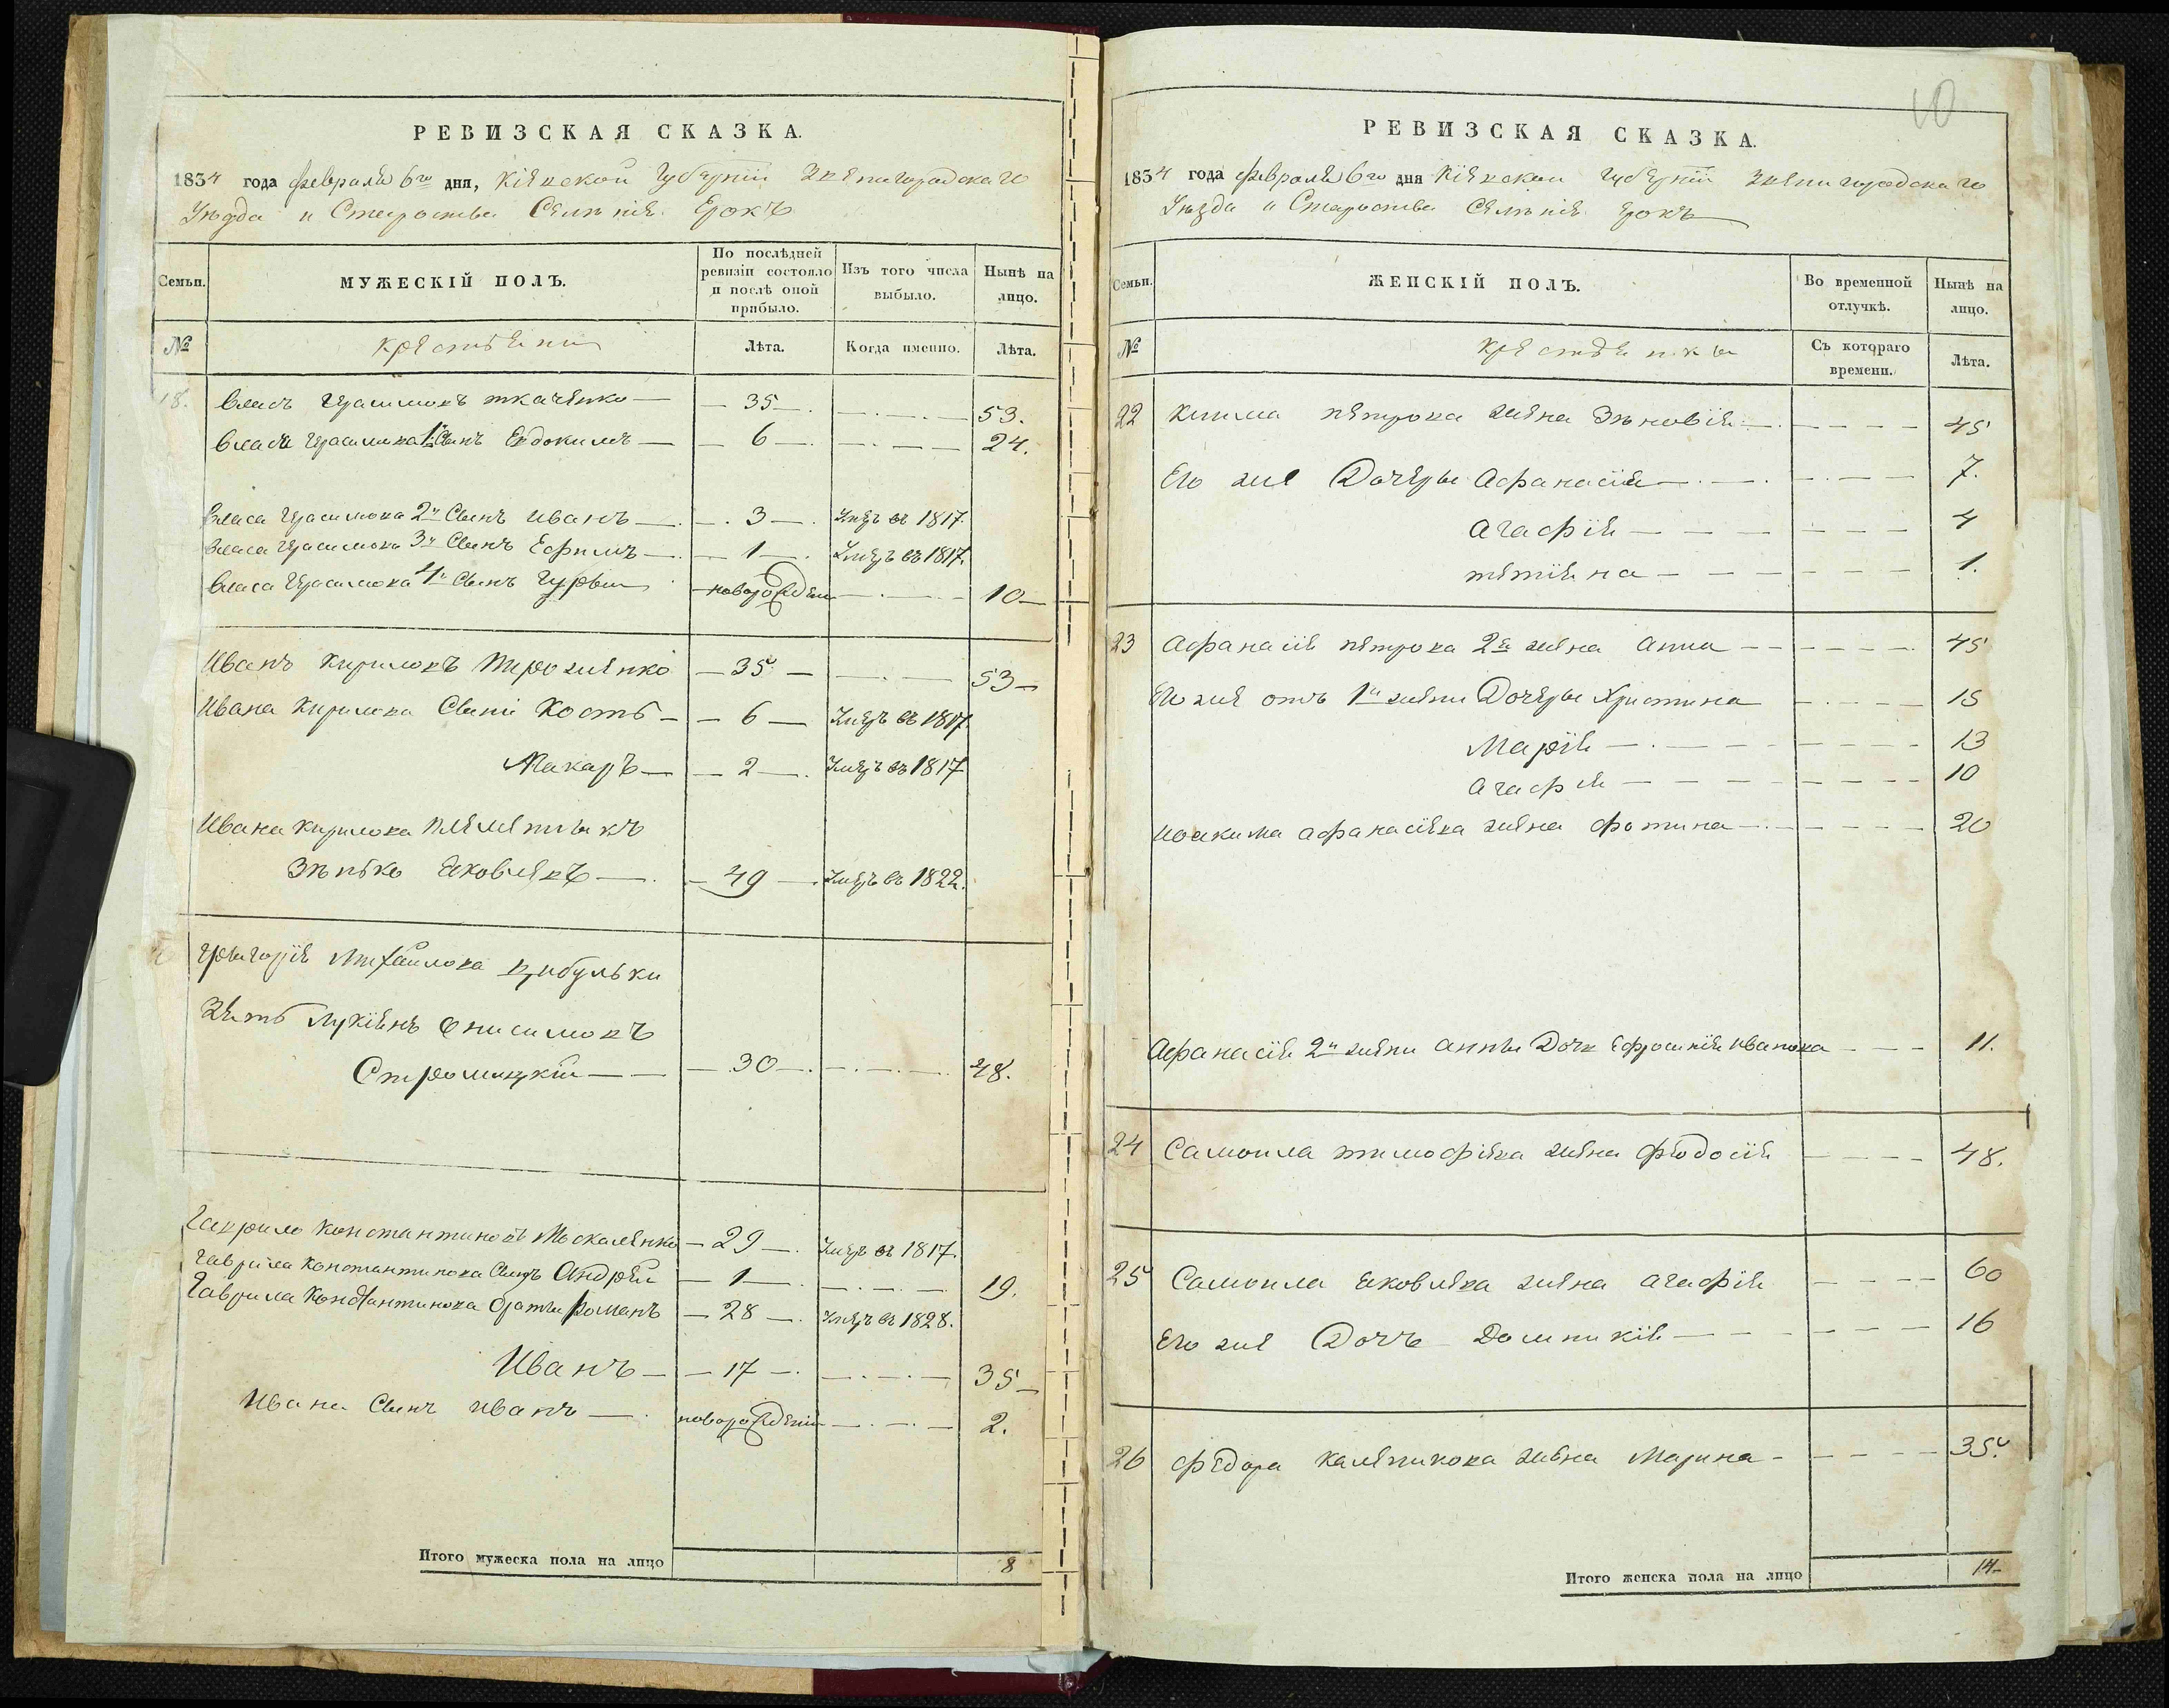 РЕВИЗСКАЯ СКАЗКА.
1834 года февраля 6го дня, Кіевской Губерніи Звенигородскаго
Уѣзда и Староства Селенія Ерокъ
Семьи.
МУЖЕСКІЙ ПОЛЪ.
По послѣдней ревизіи состояло и послѣ оной прибыло.
Изъ того числа выбыло.
Нынѣ на лицо.
№
Крестьяни
Лѣта.
Когда именно.
Лѣта.
18. Власъ Герасимовъ ткаченко — 35 — 53.
Власа Герасимова 1й Сынъ Евдокимъ — 6 — 24.
Власа Герасимова 2й Сынъ Иванъ — 3 — Умеръ въ 1817.
Власа Герасимова 3й Сынъ Ефимъ — 1 — Умеръ въ 1817.
Власа Герасимова 4й Сынъ Гурыи новорожденъ — 10 —
Иванъ Кириловъ — 35 — 53 —
Ивана Кирилова Сыни Кость — 6 — Умеръ въ 1817.
Макаръ — 2 — Умеръ въ 1817
Ивана Кирилова племенникъ
Зѣнько Яковлевъ — 49 — Умеръ въ 1822.
Григорія Михайлова Цибульки
Зять Лукіянъ Онисимовъ
Стромицкій — 30 — 48.
Гаврило Константиновъ Москаленко — 29 — Умеръ въ 1817.
Гаврила Константинова Сынъ Андрей — 1 — 19.
Гаврила Константинова братъи Романъ — 28 — Умеръ въ 1828.
Иванъ — 17 — 35 —
Ивана Сынъ Иванъ — новорожденъ — 2.
Итого мужеска пола на лицо 8
10
РЕВИЗСКАЯ СКАЗКА.
1834 года февраля 6го дня Кіевской Губерніи Звенигородскаго
Уѣзда и Староства Селенія Ерокъ
Семьи.
ЖЕНСКІЙ ПОЛЪ.
Во временной отлучкѣ.
Нынѣ на лицо.
№
Крестьянки
Съ котораго времени.
Лѣта.
22 Климa петрова жена Зѣновія — 45
Его же Дочеры Афанасія — 7.
Агафія — 4
тетяна — 1.
23 Афанасія петрова 2я жена Анна — 45
Его же отъ 1й жени Дочеры Христина — 15
Марія — 13
Агафія — 10
Иоакима афанасіева жена фотина — 20
Афанасія 2й жени анны Дочь Ефросинія Иванова — 11.
24 Самоила тимофіева жена Феодосія — 48.
25 Самоила яковлева жена агафія — 60
Его же Дочъ Домникія — 16
26 Федора каленикова жена Марина — 35.
Итого женска пола на лицо 14 —